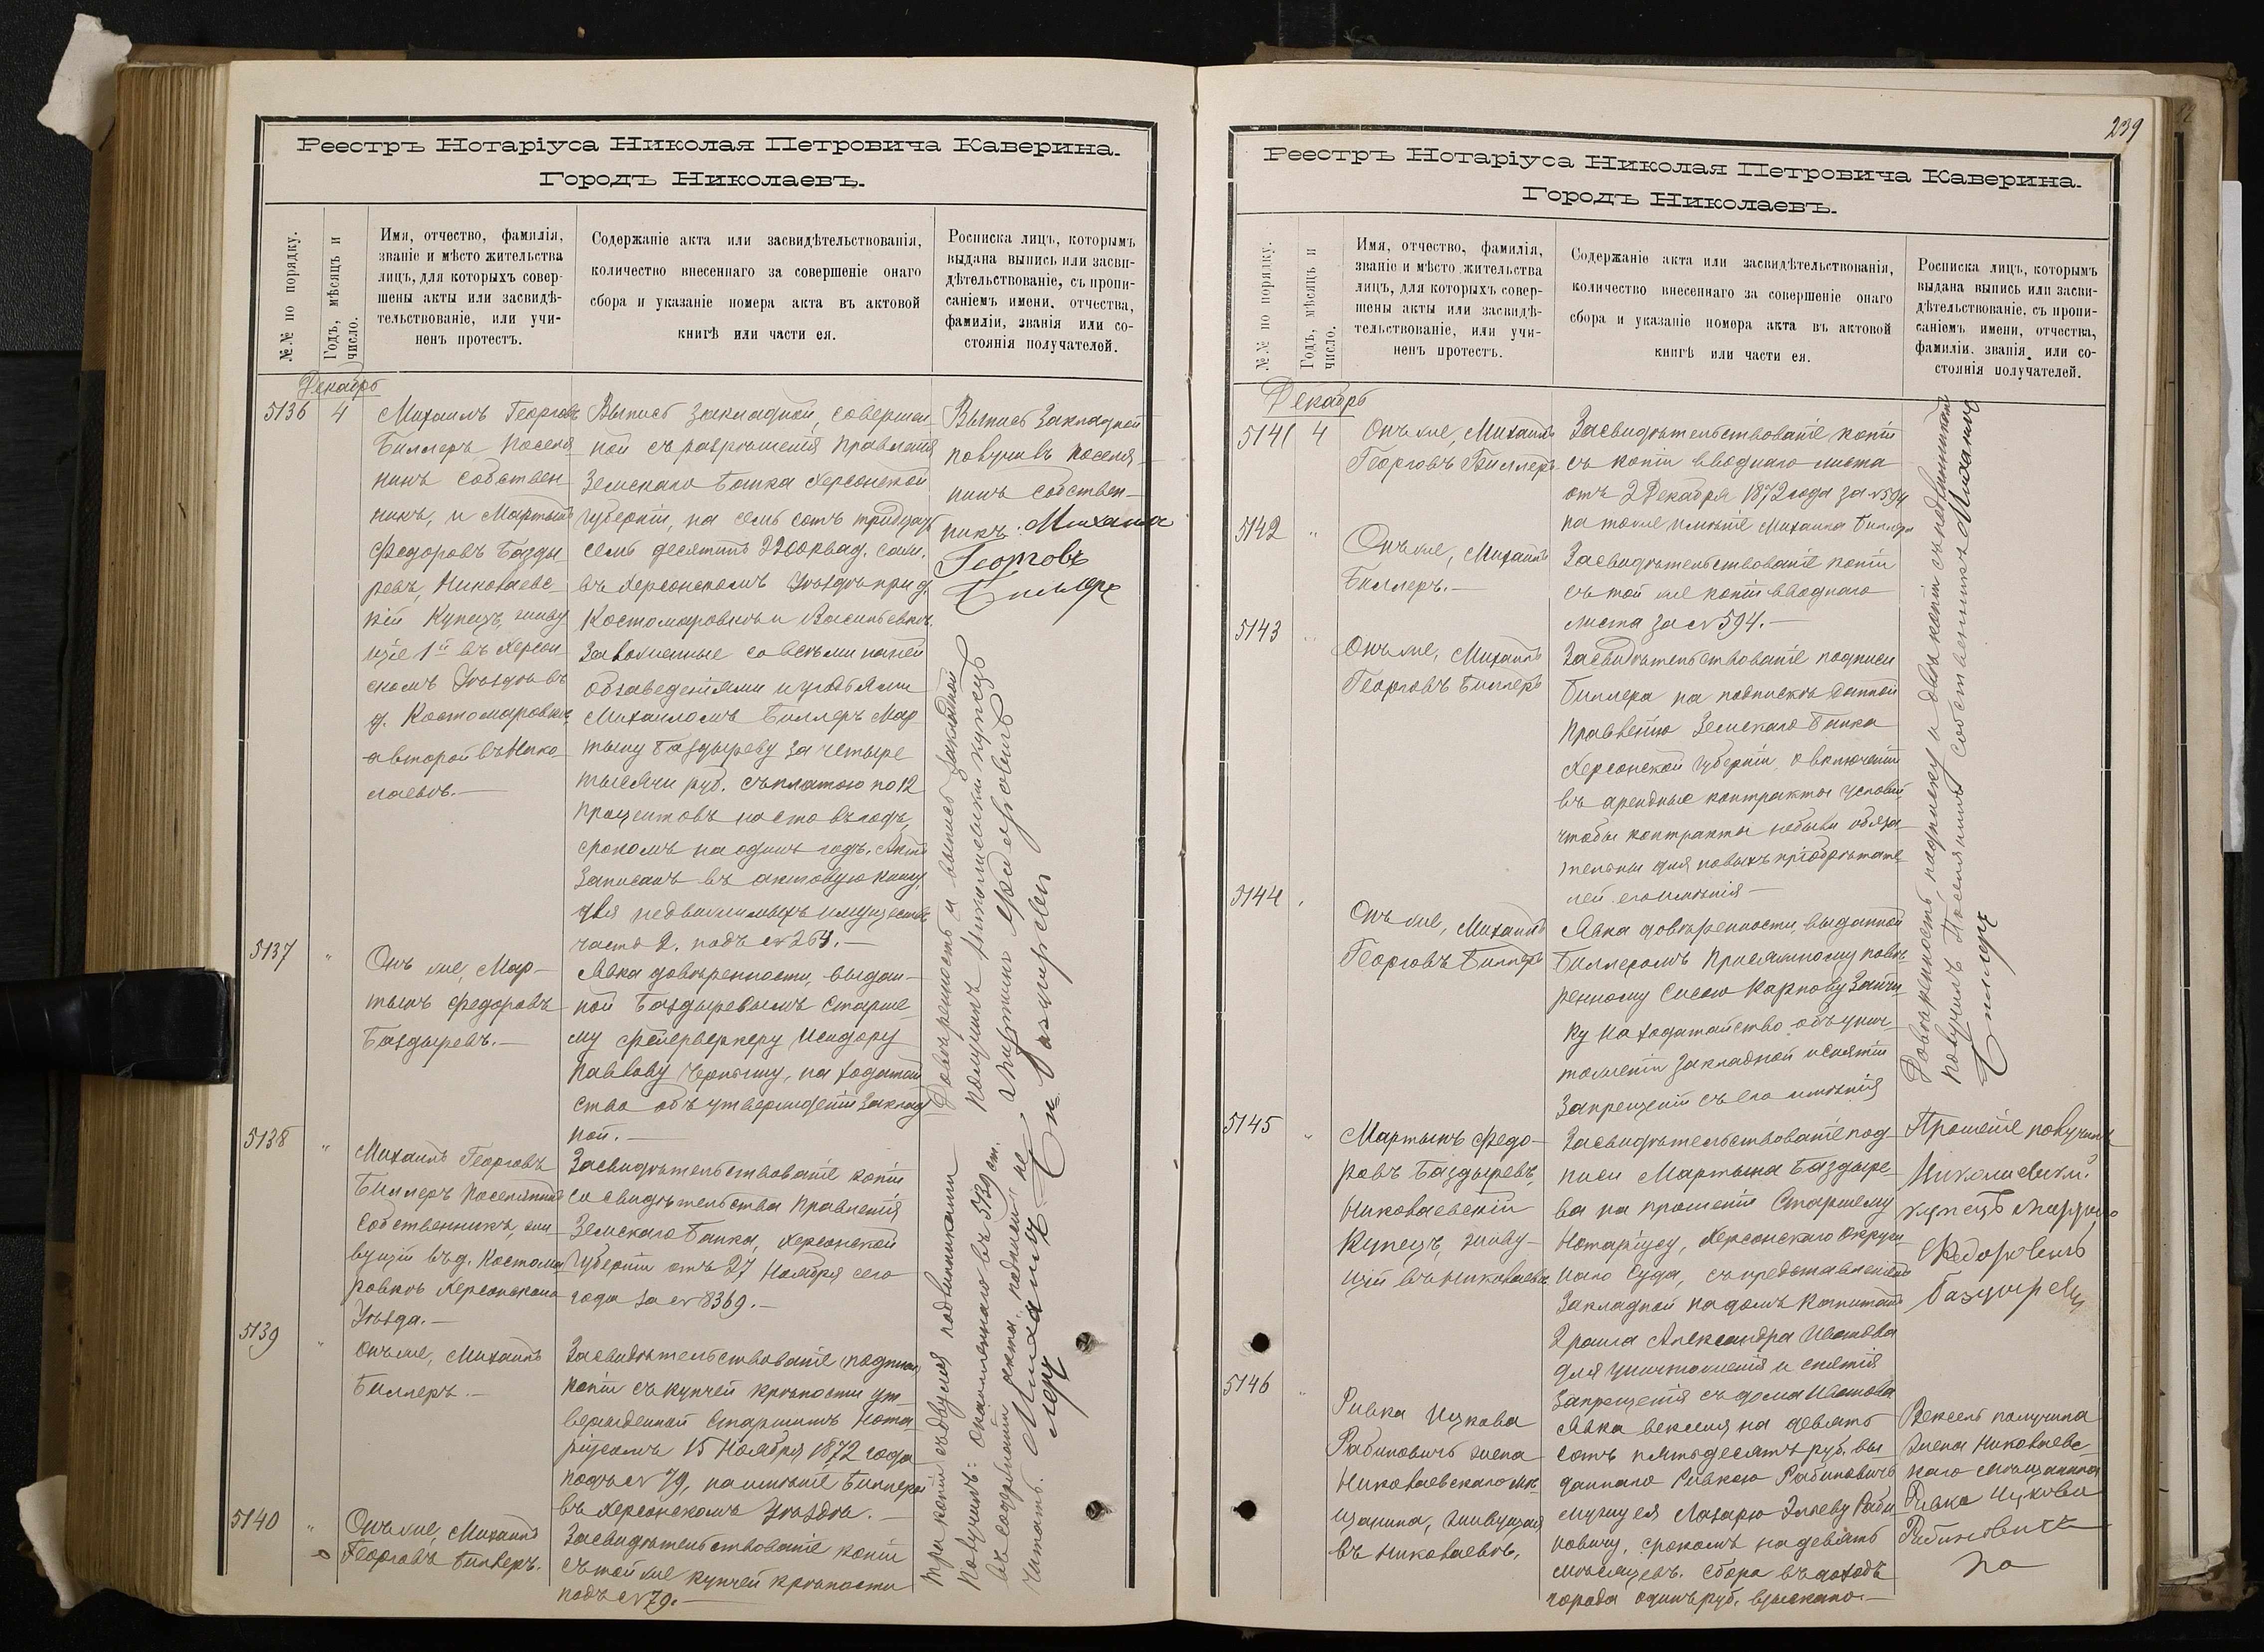 Реестръ Нотаріуса Николая Петровича Каверина.
Городъ Николаевъ.
№№ по порядку.
Годъ, мѣсяцъ и
число.
Имя, отчество, фамилія,
званіе и мѣсто жительства
лицъ, для которыхъ совер-
шены акты или засвидѣ-
тельствованіе, или учи-
ненъ протестъ.
Содержаніе акта или засвидѣтельствованія,
количество внесеннаго за совершеніе онаго
сбора и указаніе номера акта въ актовой
книгѣ или части ея.
Росписка лицъ, которымъ
выдана выпись или засви-
дѣтельствованіе, съ пропи-
саніемъ имени, отчества,
фамиліи, званія или со-
стоянія получателей.
Декабрь
5136
4
Михаилъ Георговъ
Биллеръ поселя
нинъ собствен-
никъ, и Мартынъ
Федоровъ Базды
ревъ, Николаевс-
кій Купецъ, живу
щіе 1й въ Херсон
скомъ Уѣздѣ въ
д. Костомаровкѣ,
а второй въ Нико-
лаевѣ.—
Выпись закладной, совершен
ной съ разрѣшенія Правленія
Земскаго Банка Херсонской
Губерніи, на семь сотъ тридцать
семь десятинъ 2200 квад. саж.
въ Херсонскомъ Уѣздѣ при д.
Костомаровкѣ и Васильевкѣ,
Заложенные со всѣми на ней
обзаведеніями и угодьями
Михаиломъ Биллеръ Мар
тыну Баздыреву за четыре
тысячи руб. съ платою по 12
процентовъ на сто въ годъ,
срокомъ на одинъ годъ. Актъ
Записанъ въ актовую книгу,
для недвижимыхъ имуществъ
часть 2. подъ №264.—
Выпись Закладной
получилъ поселя-
нинъ собствен-
никъ: Михаилъ
Георговъ
Биллеръ
5137
"
Онъ же, Мар-
тынъ Федоровъ
Баздыревъ.—
Явка довѣренности, выдан-
ной Баздыревымъ Старше-
му фейерверкеру Исидору
Павлову Черному, на ходатай
ство объ утвержденіи Заклад
ной.—
5138
"
Михаилъ Георговъ
Биллеръ Поселянинъ
Собственникъ, жи
вущій въ д. Костома
ровкѣ Херсонскаго
Уѣзда.—
Засвидѣтельствованіе копіи
со свидѣтельства Правленія
Земскаго Банка, Херсонской
Губерніи отъ 27 Ноября сего
года за №8369.—
5139
"
Онъ же, Михаилъ
Биллеръ.—
Засвидѣтельствованіе подписи,
копіи съ купчей крѣпости ут-
вержденной Старшимъ Нота
ріусомъ 15 Ноября 1872 года
подъ №79, на имѣніе Биллера
въ Херсонскомъ Уѣздѣ.—
5140
"
Онъ же, Михаилъ
Георговъ Биллеръ.
Засвидѣтельствованіе копіи
съ той же купчей крѣпости
подъ №79.—
Довѣренность и выпись закладной
получилъ Николаевскій купецъ
Мартынъ Федоровичъ
Баздыревъ
Три копіи съ двумя подлинниками
Получилъ:
въ 5139 ст.
читать. Михаилъ Биллеръ
239
Реестръ Нотаріуса Николая Петровича Каверина.
Городъ Николаевъ.
№№ по порядку.
Годъ, мѣсяцъ и
число.
Имя, отчество, фамилія,
званіе и мѣсто жительства
лицъ, для которыхъ совер-
шены акты или засвидѣ-
тельствованіе, или учи-
ненъ протестъ.
Содержаніе акта или засвидѣтельствованія,
количество внесеннаго за совершеніе онаго
сбора и указаніе номера акта въ актовой
книгѣ или части ея.
Росписка лицъ, которымъ
выдана выпись или засви-
дѣтельствованіе, съ пропи-
саніемъ имени, отчества,
фамиліи, званія или со-
стоянія получателей.
Декабрь
5141
4
Онъ же, Михаилъ
Георговъ Биллеръ
Засвидѣтельствованіе копіи
съ копіи вводнаго листа
отъ 2 Декабря 1872 года за №594
на тоже имѣніе Михаила Биллера
5142
"
Онъ же, Михаилъ
Биллеръ.—
Засвидѣтельствованіе копіи
съ той же копіи вводнаго
листа за №594.—
5143
"
Онъ же, Михаилъ
Георговъ Биллеръ
Засвидѣтельствованіе подписи
Биллера на подпискѣ данной
Правленію Земскаго Банка
Херсонской Губерніи, о включеніи
въ арендные контракты условій,
чтобы контракты небыли обяза
тельны для новыхъ пріобрѣтате
лей его имѣнія—
5144
Онъ же, Михаилъ
Георговъ Биллеръ
Явка довѣренности выданной
Биллеромъ Присяжному повѣ
ренному Сисою Карпову Зайчи-
ку на ходатайство объ унич
тоженіи Закладной и снятіи
Запрещеній съ его имѣнія
Довѣренность, подписку и двѣ копіи съ подлинникомъ
получилъ Поселянинъ собственникъ Михаилъ
Биллеръ
5145
"
Мартынъ Федо-
ровъ Баздыревъ,
Николаевскій
Купецъ, живу-
щій въ Николаевѣ
Засвидѣтельствованіе под-
писи Мартына Баздыре-
ва на прошеніи Старшему
Нотаріусу, Херсонскаго Окруж
наго Суда, съ представленіемъ
Закладной на домъ Капитана
2 ранга Александра Иванова
для уничтоженія и снятія
Запрещенія съ дома Иванова
Прошеніе получилъ
Николаевскій
купецъ Мартынъ
Федоровичъ
Баздыревъ
5146
"
Ривка Ицкова
Рабиновичъ жена
Николаевскаго мѣ-
щанина, живущая
въ Николаевѣ,
Явка векселя на девять
сотъ пятьдесятъ руб. вы
даннаго Ривкою Рабиновичъ
мужу ея Лазарю Эльеву Раби
новичу, срокомъ на девять
мѣсяцевъ. Сбора въ доходъ
города одинъ руб. взыскано.—
Вексель получила
жена Николаевс
каго мѣщанина
Ривка Ицкова
Рабиновичъ